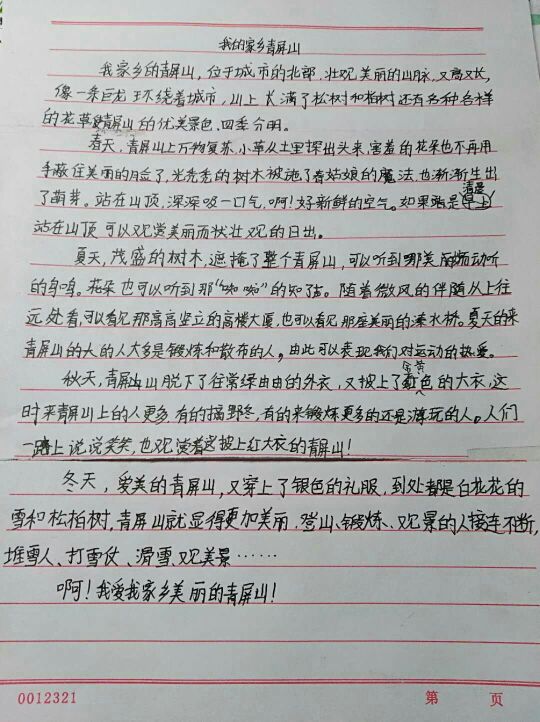 我的家乡青屏山
我家乡的青屏山,位于城市的北部,壮观美丽的山脉,又高又长,
像一条巨龙环绕着城市,山上长满了松树和柏树还有各种各样
的花草使青屏山的优美景色,四季分明。
春天,青屏山上万物复苏,小草从土里探出头来,害羞的花朵也不再用
手蔽住美丽的脸了,光秃秃的树木被施了春姑娘的魔法,也渐渐生出
了萌芽。站在山顶,深深吸一口气,啊!好新鲜的空气。如果是清晨
站在山顶,可以观赏美丽而状壮观的日出。
夏天,茂盛的树木,遮掩了整个青屏山,可以听到那美丽而动听
的鸟鸣。花朵也可以听到那“吱吱”的知了。随着微风的伴随从上往
远处看,可以看见那高高坚立的高楼大厦,也可以看见那座美丽的溱水桥。夏天的来
青屏山的大的人大多是锻炼和散布的人,由此可以表现我们对运动的热爱。
秋天,青屏山山脱下了往常绿由由的外衣,又披上了金黄色的大衣,这
时来青屏山上的人更多,有的摘野冬,有的来锻炼更多的还是游玩的人。人们
一路上说说笑笑,也观赏着披上红大衣的青屏山!
冬天,爱美的青屏山,又穿上了银色的礼服,到处都是白花花的
雪和松柏树,青屏山就显得更加美丽,登山、锻炼、观景的人接连不断,
堆雪人、打雪仗、滑雪、观美景……
啊!我爱我家乡美丽的青屏山!
0012321 第 页